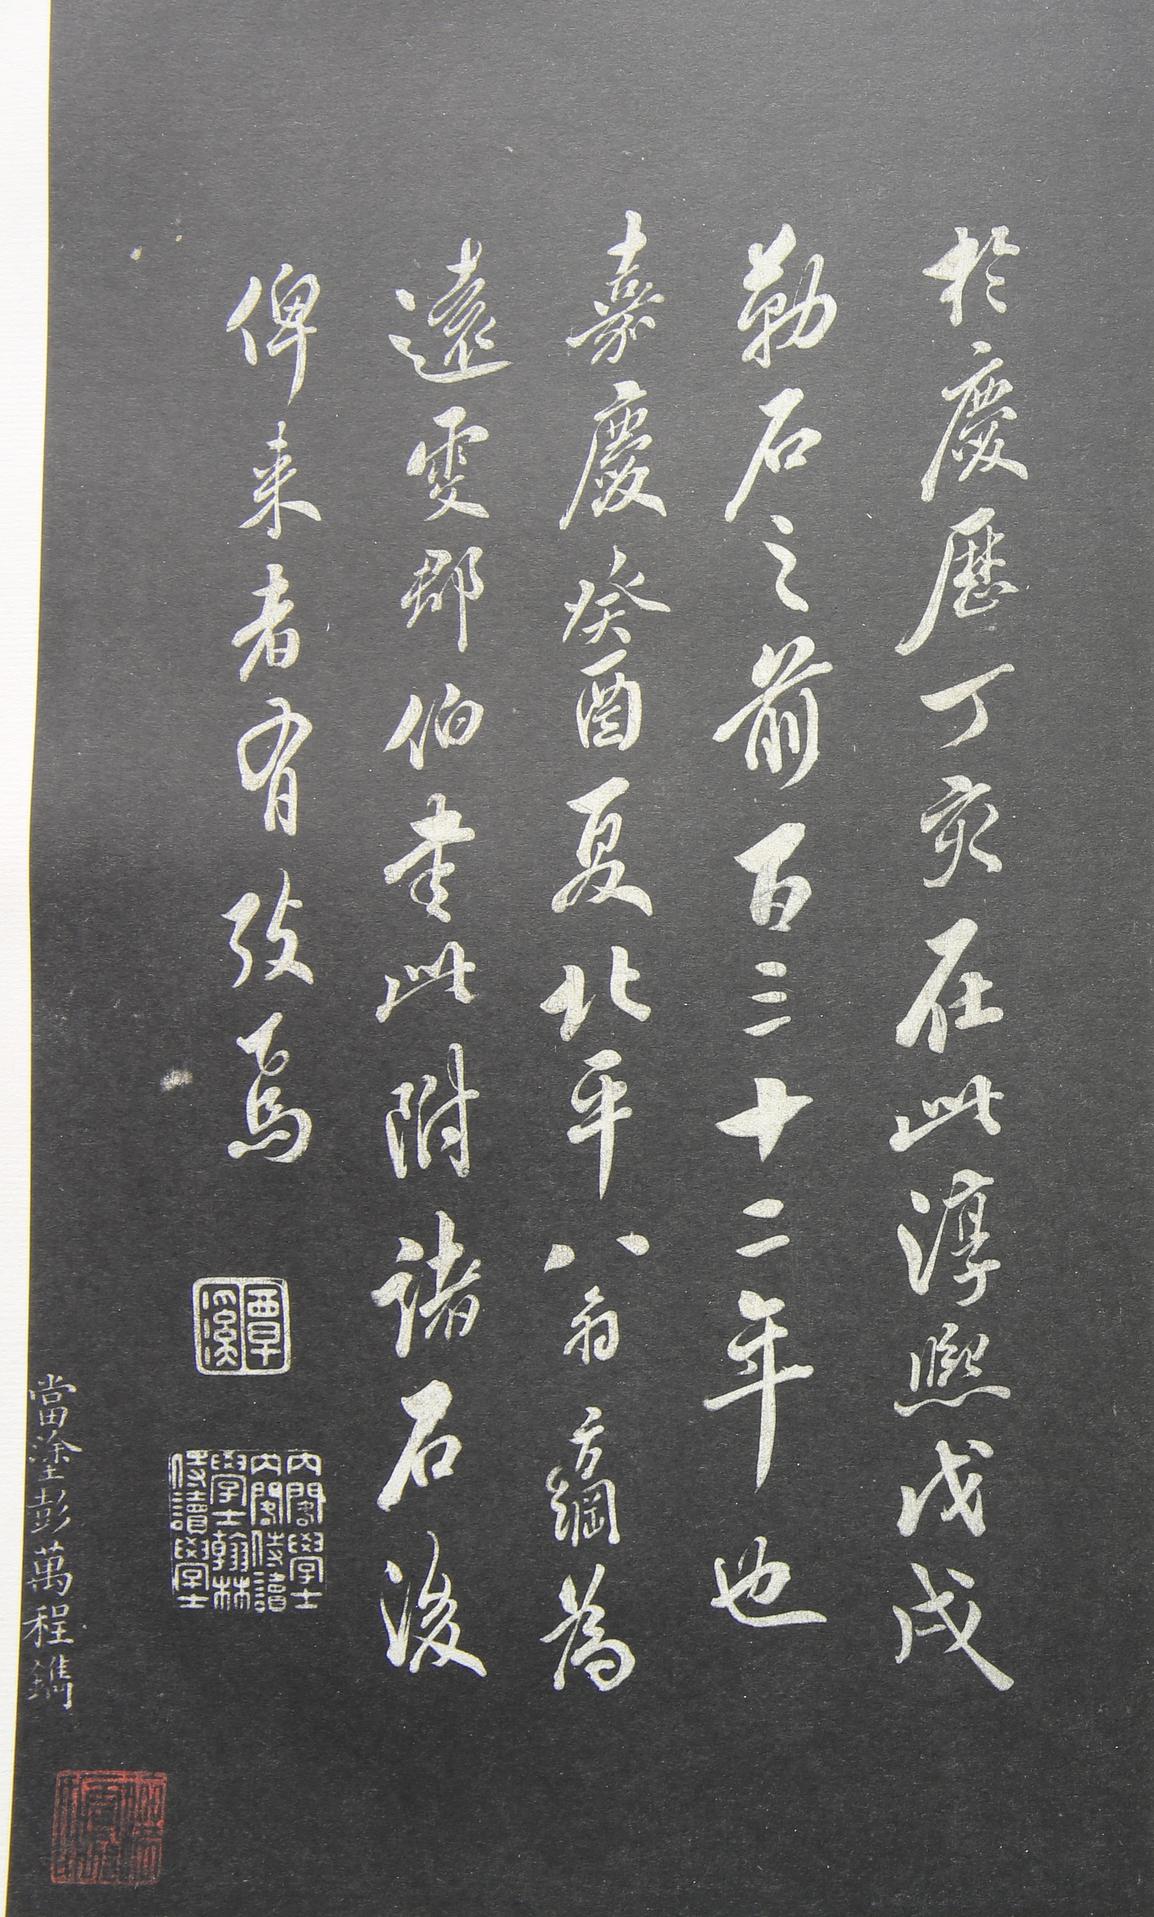 於慶歷丁亥在此淳熙戊戌
勒石之前百三十二年也
嘉慶癸酉夏北平八翁方綱為
遠雯郡伯書此附諸石後
俾来者有攷焉
覃溪
內閣學士內閣侍讀學士翰林侍讀學士
當塗彭萬程鐫